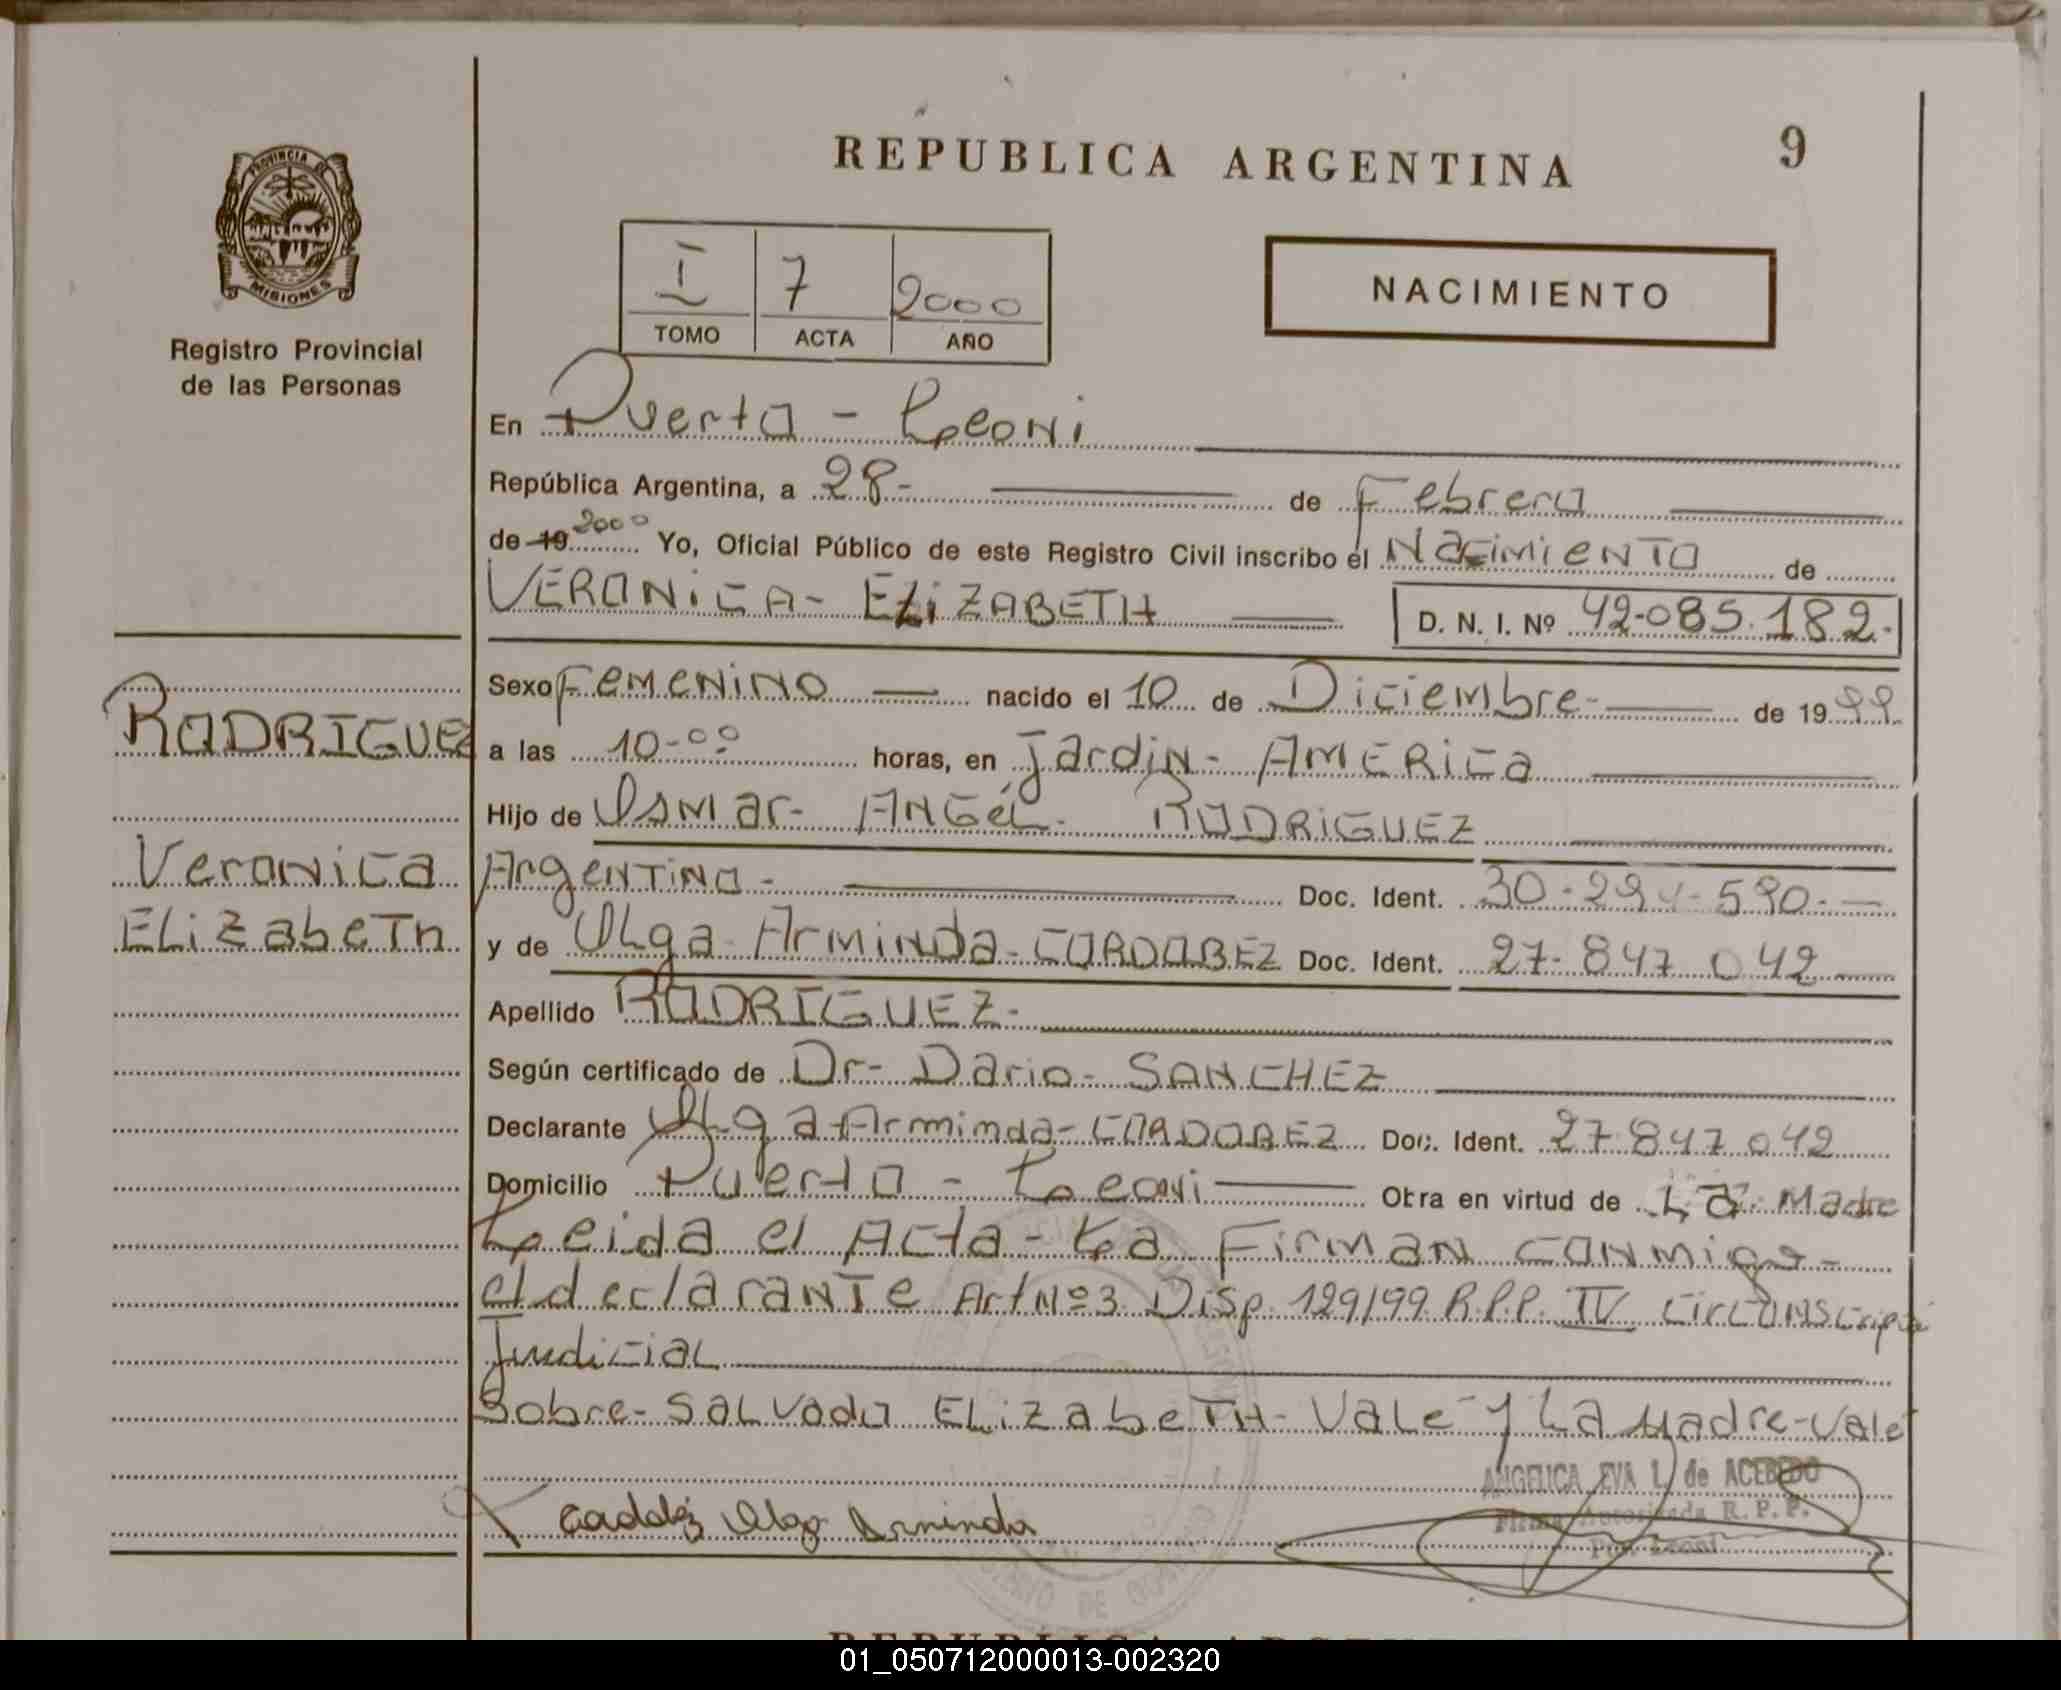 PROVINCIA DE
MISIONES
Registro Provincial
de las Personas
REPUBLICA ARGENTINA
9
I 7 2000
TOMO ACTA AÑO
NACIMIENTO
En Puerto - Leoni
República Argentina, a 28- de Febrero
de 19 2000 Yo, Oficial Público de este Registro Civil inscribo el Nacimiento de
VERONICA - ELIZABETH D. N. I. Nº 42-085.182-
RODRIGUEZ
Veronica
ELizabeTh
Sexo Femenino nacido el 10 de Diciembre- de 1999
a las 10-00 horas, en Jardin - AMERica
Hijo de Osmar - ANGeL - RODRiGUEZ
ArgenTino - Doc. Ident. 30-294-590-
y de OLga - Arminda - CORDOBEZ Doc. Ident. 27-847 042
Apellido RODRIGUEZ-
Según certificado de Dr- Dario- SANCHEZ
Declarante OLga - Arminda - CORDOBEZ Doc. Ident. 27 847 042
Domicilio Puerto - Leoni Obra en virtud de La Madre
Leida el Acta - La Firman conmigo -
el declaranTe Art Nº 3 Disp. 129/99 R.P.P. IV Circunscripci
Judicial
Sobre- SaLvado ELizabeTH - VaLe y La Madre - Vale
ANGELICA EVA L. de ACEBEDO
Firma Autorizada R. P. P.
Pto. Leoni
Olga Arminda
REPUBLICA
01_050712000013-002320